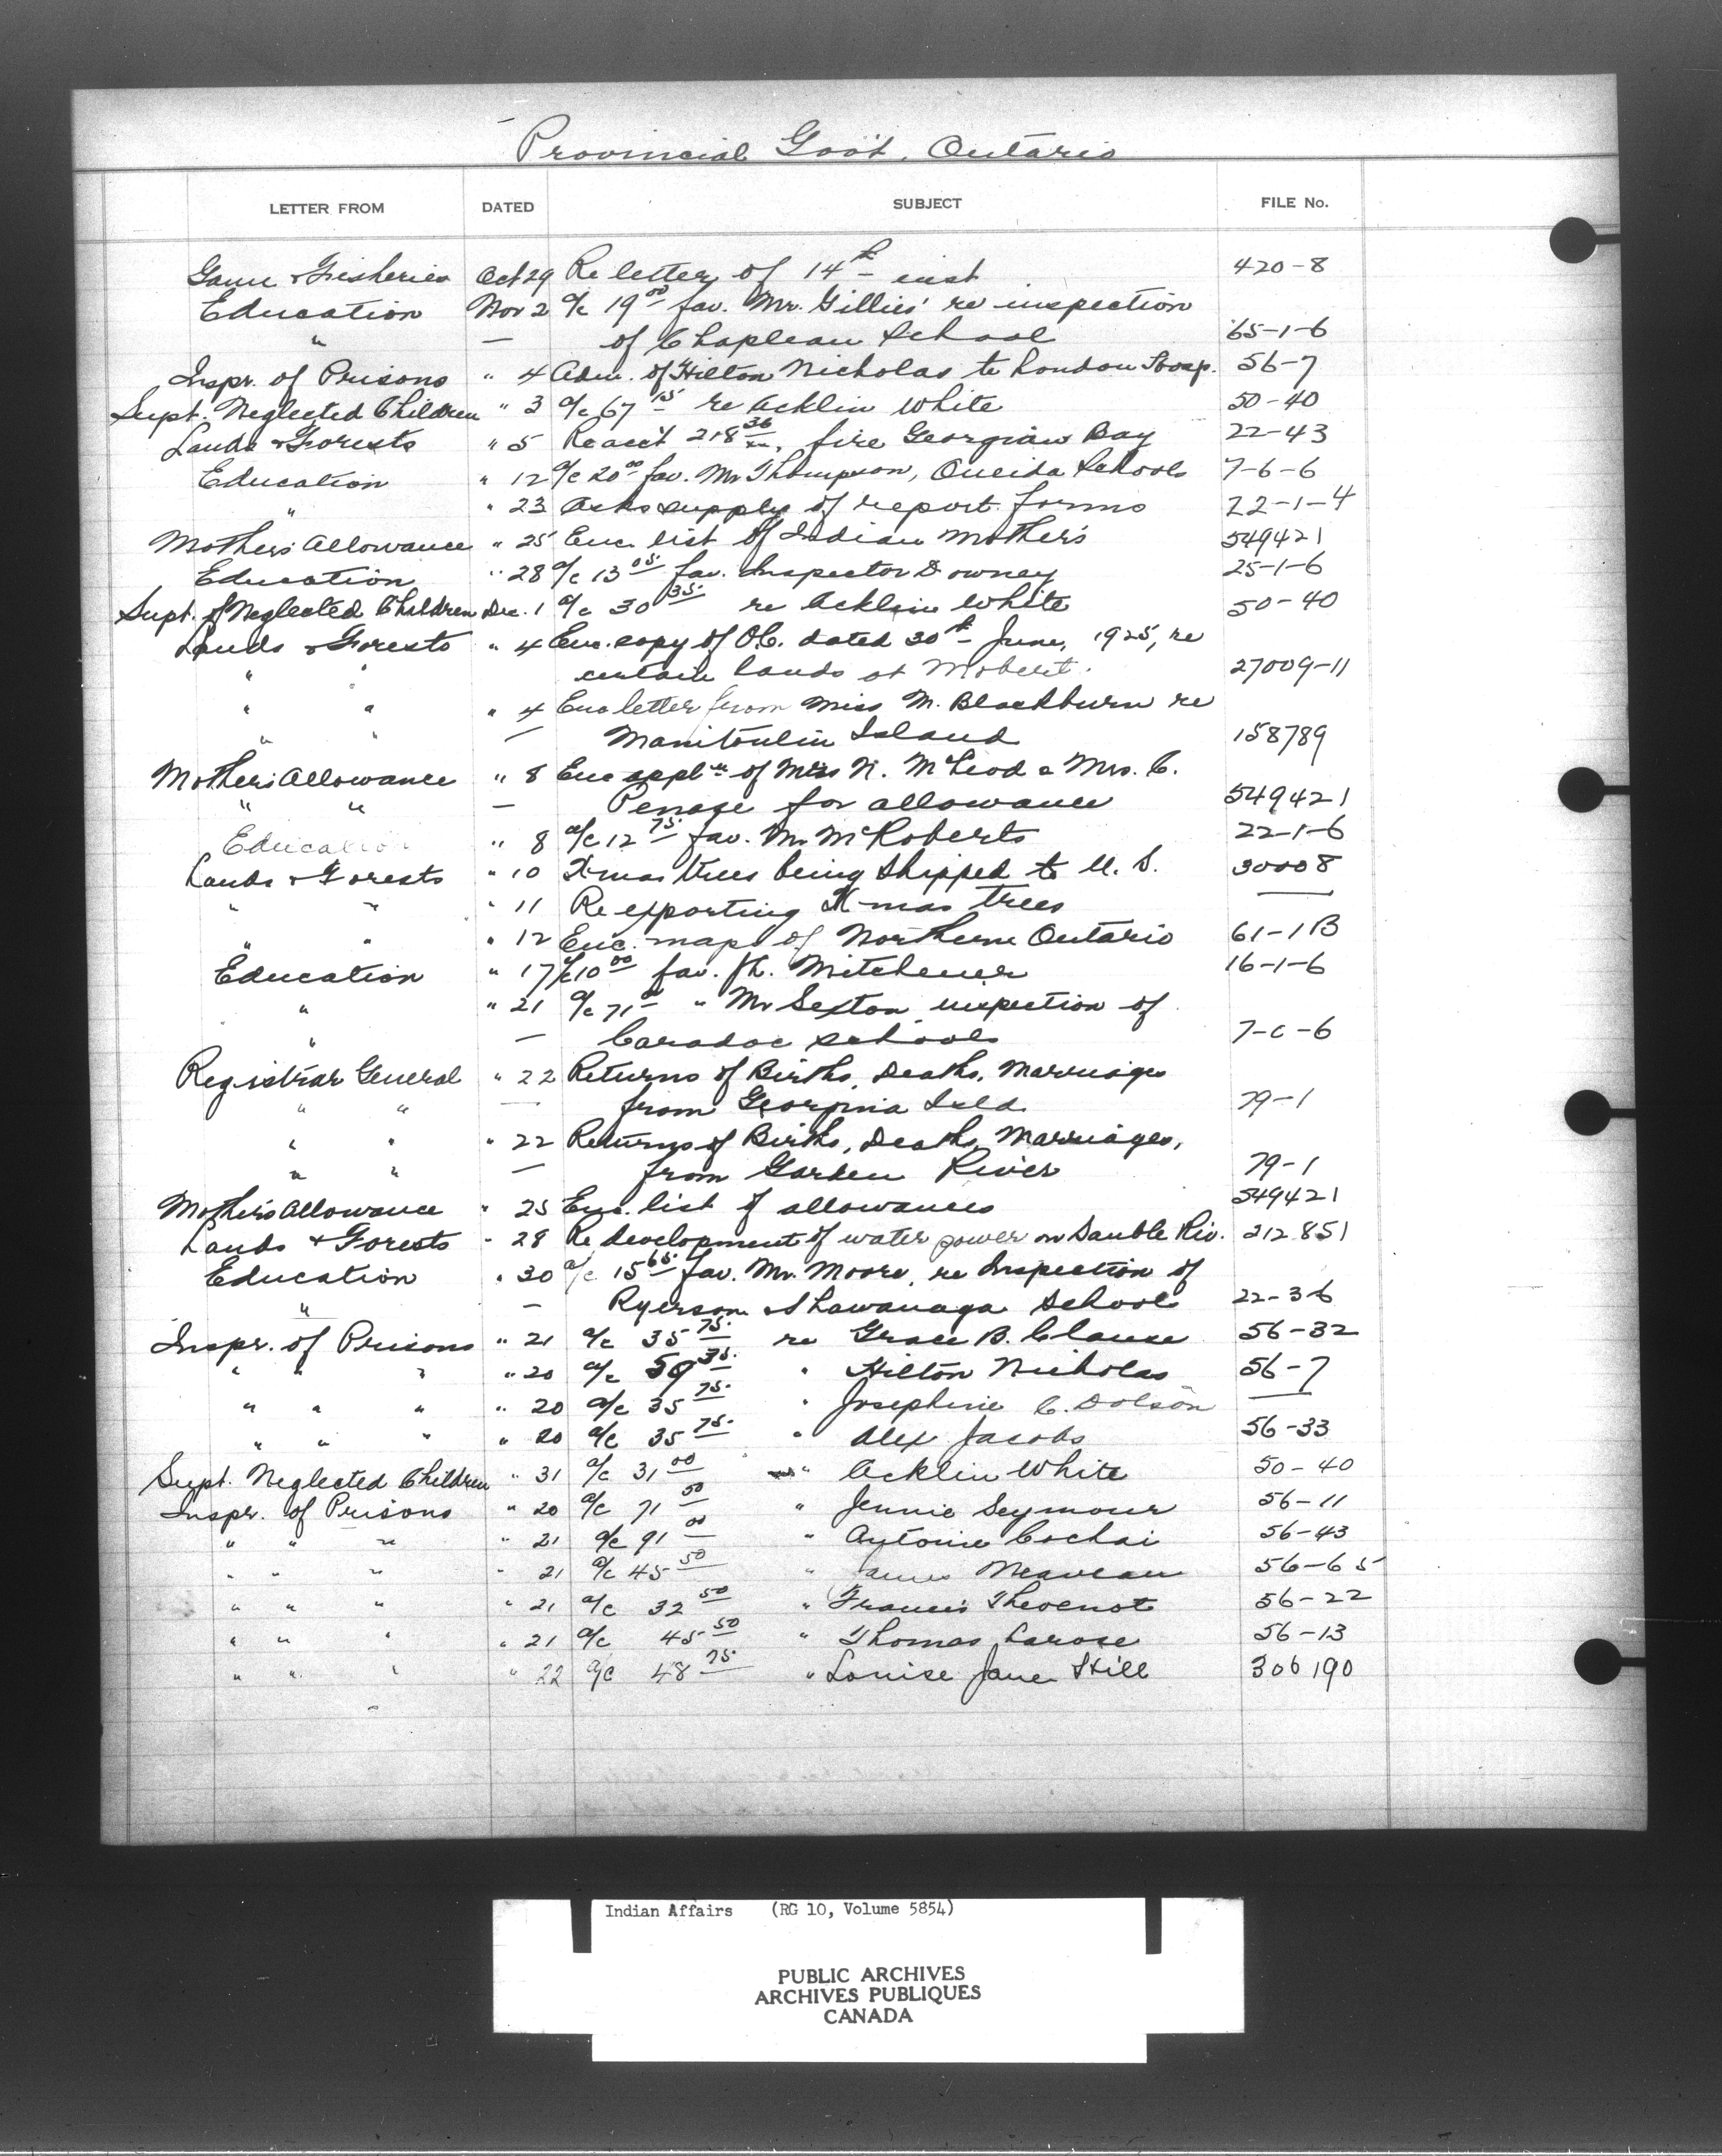 Provincial Gov't. Ontario
LETTER FROM DATED SUBJECT FILE No.
Game & Fisheries Oct 29 Re letter of 14th inst 420-8
Education Nov 2 a/c 19 00 fav. Mr. Gillies' re inspection
" — of Chapleau School 65-1-6
Inspr. of Prisons " 4 Adm. of Hilton Nicholas to London Hosp. 56-7
Supt. Neglected Children " 3 a/c 67 15 re Acklin White 50-40
Lands & Forests " 5 Re acc't 218 36/xx, fire Georgian Bay 22-43
Education " 12 a/c 20 00 fav. Mr Thompson, Oneida Schools 7-6-6
" " 23 Asks supply of report forms 22-1-4
Mothers' Allowance " 25 Enc. list of Indian Mothers 549421
Education " 28 a/c 13 05 fav. Inspector Downey 25-1-6
Supt. of Neglected Children Dec. 1 a/c 30 35 re Acklin White 50-40
Lands & Forests " 4 Enc. copy of O.C. dated 30th June, 1925, re
" " certain lands at Mobert. 27009-11
" " " 4 Enc letter from Miss M. Blackburn re
" " — Manitoulin Island 158789
Mothers Allowance " 8 Enc appln of Mrs N. McLeod & Mrs. C.
" " — Penase for allowance 549421
Education " 8 a/c 12 75 fav. Mr McRoberts 22-1-6
Lands & Forests " 10 X-mas trees being shipped to U. S. 30008
" " " 11 Re exporting X-mas trees —
" " " 12 Enc. map of Northern Ontario 61-1B
Education " 17 a/c 10 00 fav. Mitchener 16-1-6
" " 21 a/c 71 " Mr Sexton inspection of
" — Caradoc schools 7-C-6
Registrar General " 22 Returns of Births, Deaths, Marriages
" " — from Georgina Isld. 79-1
" " " 22 Returns of Births, Deaths, Marriages,
" " — from Garden River 79-1
Mothers Allowance " 25 Enc. list of allowances 549421
Lands & Forests " 28 Re development of water power on Sauble Riv. 212851
Education " 30 a/c 15 65 fav. Mr. Moore, re Inspection of
" — Ryerson & Shawanaga Schools 22-3-6
Inspr. of Prisons " 21 a/c 35 75 re Grace B. Clause 56-32
" " " " 20 a/c 59 35 " Hilton Nicholas 56-7
" " " " 20 a/c 35 75 " Josephine C. Dolson —
" " " " 20 a/c 35 75 " Alex Jacobs 56-33
Supt. Neglected Children " 31 a/c 31 00 " Acklin White 50-40
Inspr. of Prisons " 20 a/c 71 50 " Jennie Seymour 56-11
" " " " 21 a/c 91 00 " Antonie Cochai 56-43
" " " " 21 a/c 45 50 " James Neaveau 56-65
" " " " 21 a/c 32 50 " Francis Thevenot 56-22
" " " " 21 a/c 45 50 " Thomas Larose 56-13
" " " " 22 a/c 48 75 " Louise Jane Hill 306190
Indian Affairs (RG 10, Volume 5854)
PUBLIC ARCHIVES
ARCHIVES PUBLIQUES
CANADA